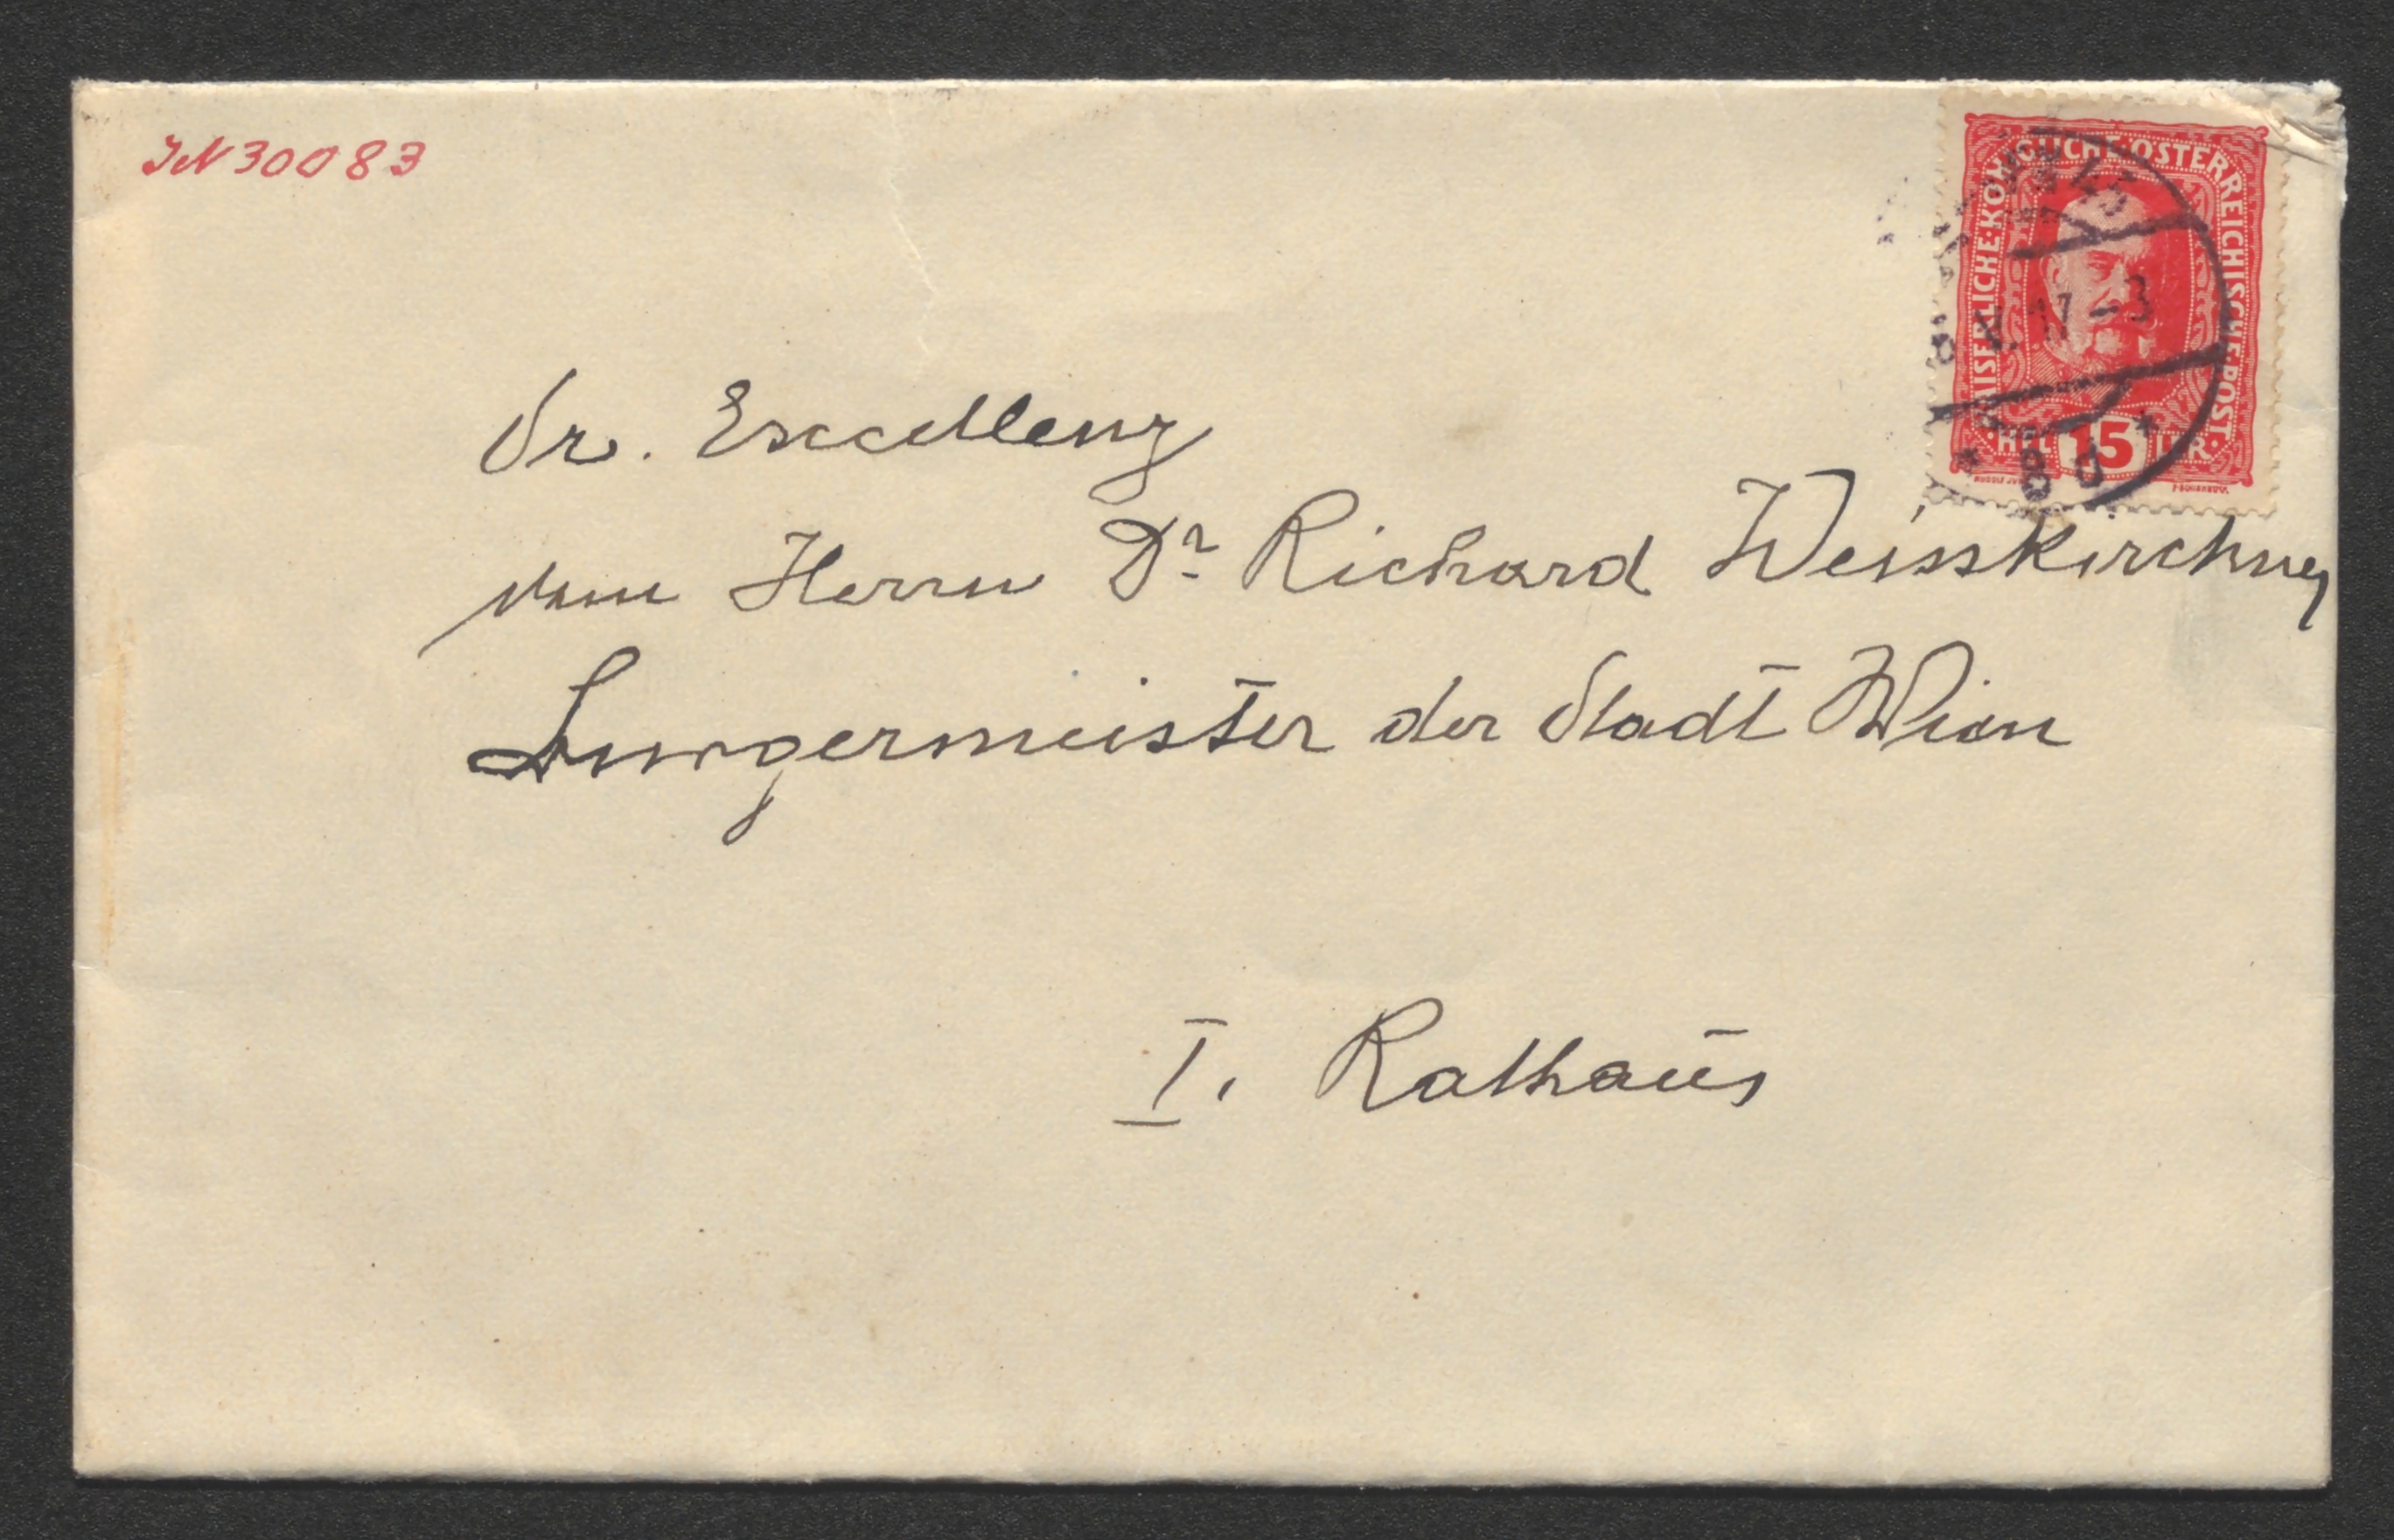 IN 30083
Sr. Excellenz
Herrn Dr Richard Weisskirchner
Burgermeister der Stadt Wien
I. Rathaus
KAISERLICHE·KÖNIGLICHE·ÖSTERREICHISCHE·POST·
HELLER
15
17 - 3